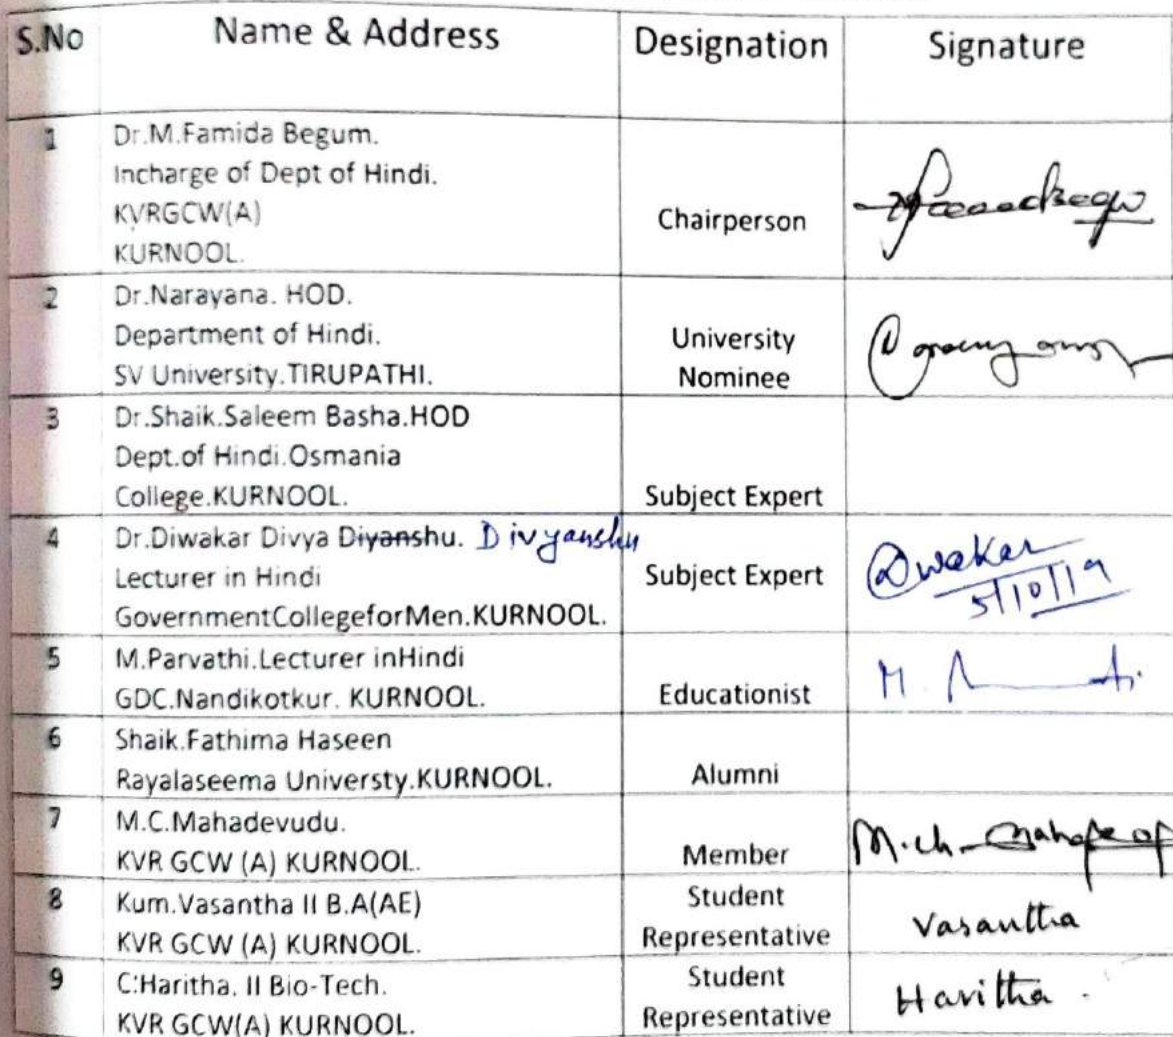 S.No Name & Address Designation Signature
1 Dr.M.Famida Begum.
Incharge of Dept of Hindi.
KVRGCW(A)
Chairperson
KURNOOL.
2 Dr.Narayana. HOD.
Department of Hindi.
University
SV University.TIRUPATHI.
Nominee
3 Dr.Shaik.Saleem Basha.HOD
Dept.of Hindi.Osmania
College.KURNOOL. Subject Expert
4 Dr.Diwakar Divya Diyanshu. Divyanshu
Lecturer in Hindi Subject Expert Diwakar
5/10/19
GovernmentCollegeforMen.KURNOOL.
5 M.Parvathi.Lecturer inHindi
GDC.Nandikotkur. KURNOOL. Educationist M.
6 Shaik.Fathima Haseen
Rayalaseema Universty.KURNOOL. Alumni
7 M.C.Mahadevudu.
KVR GCW (A) KURNOOL. Member M.ch.
8 Kum.Vasantha II B.A(AE) Student
KVR GCW (A) KURNOOL. Representative Vasantha
9 C.Haritha. II Bio-Tech. Student
KVR GCW(A) KURNOOL. Representative Haritha.